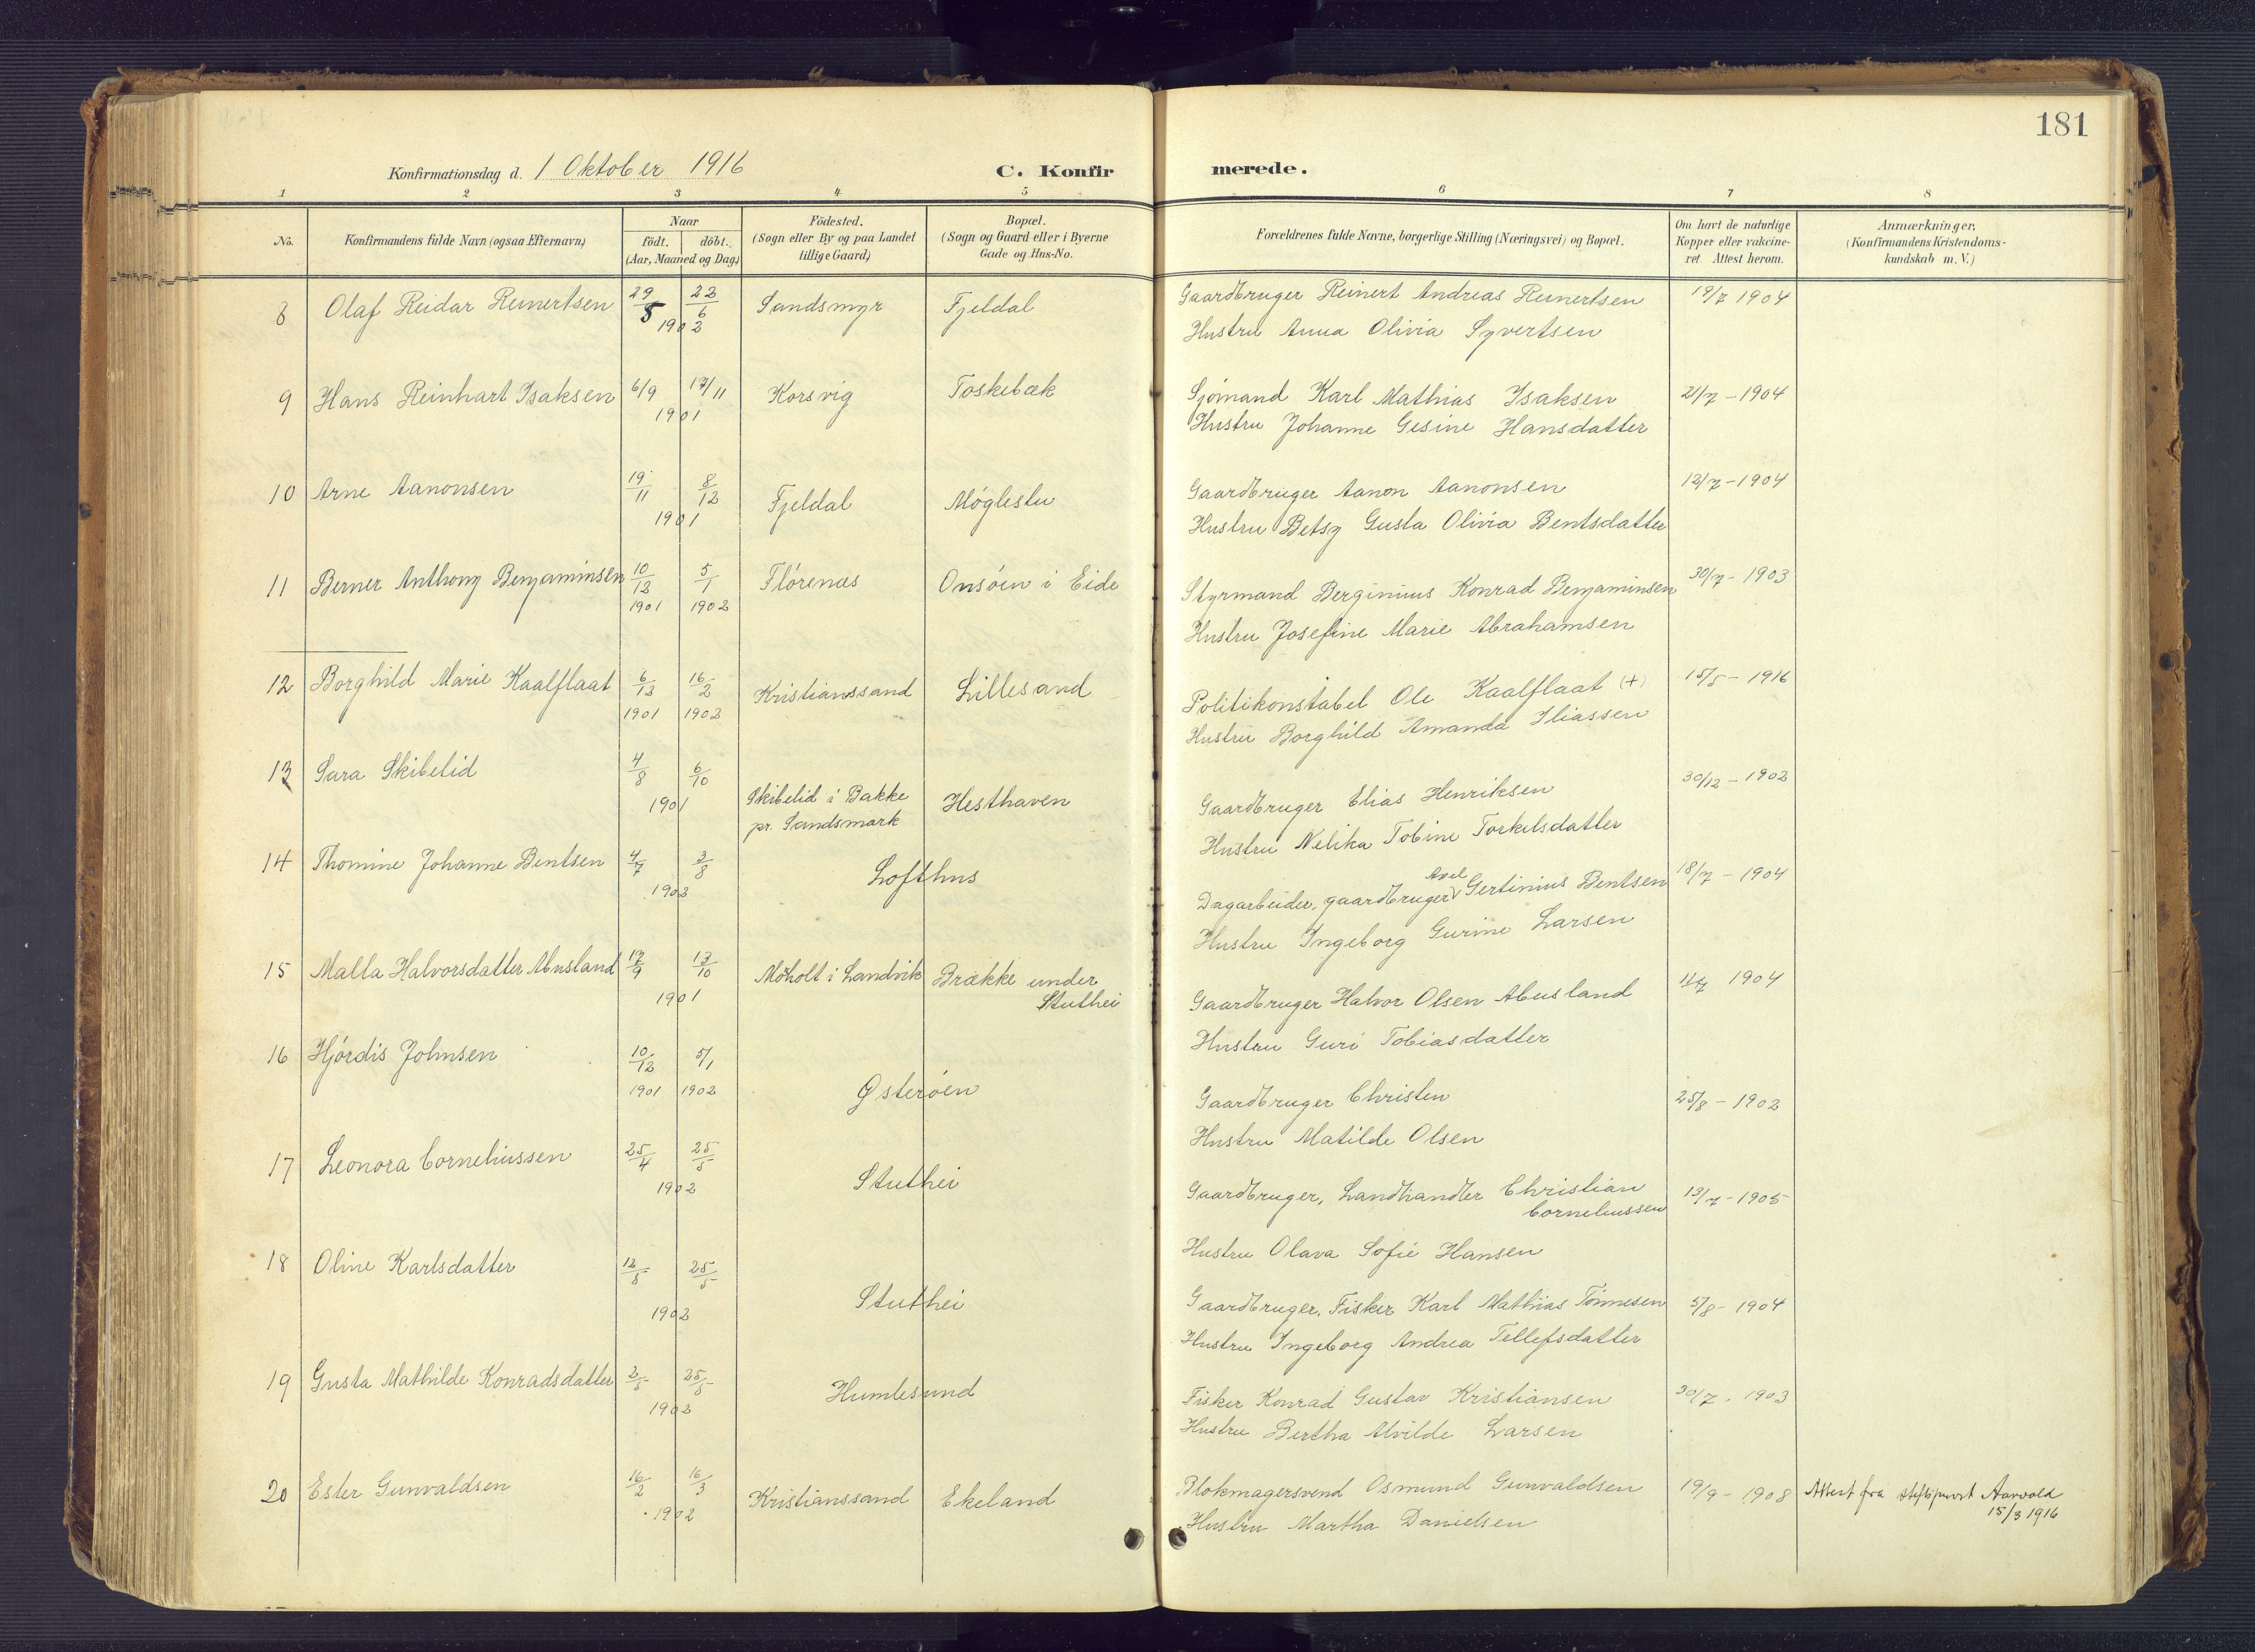 181
Konfirmationsdag d. 1 Oktober 1916
C. Konfirmerede.
1 2 3 4 5 6 7 8
No.
Konfirmandens fulde Navn (ogsaa Efternavn)
Naar
födt. döbt.
(Aar, Maaned og Dag)
Födested.
(Sogn eller By og paa Landet
tillige Gaard)
Bopæl.
(Sogn og Gaard eller i Byerne
Gade og Hus-No.
Forældrenes fulde Navne, borgerlige Stilling (Næringsvei) og Bopæl.
Om havt de naturlige
Kopper eller vakcine-
ret. Attest herom.
Anmærkninger.
(Konfirmandens Kristendoms-
kundskab m. V.)
8 Olaf Reidar Reinertsen 29/5 22/6 1902 Sandsmyr Fjeldal
Gaardbruger Reinert Andreas Reinertsen 19/7 1904
Hustru Anna Olivia Syvertsen
9 Hans Reinhart Isaksen 6/9 17/11 1901 Korsvig Toskebæk
Sjømand Karl Mathias Isaksen 21/7 - 1904
Hustru Johanne Gesine Hansdatter
10 Arne Aanonsen 19/11 8/12 1901 Fjeldal Møglestu
Gaardbruger Aanon Aanonsen 12/7 - 1904
Hustru Betsy Gusta Olivia Bentsdatter
11 Berner Anthony Benjaminsen 10/12 1901 5/1 1902 Flórenæs Onsöen i Eide
Styrmand Berginius Konrad Benjaminsen 30/7 - 1903
Hustru Josefine Marie Abrahamsen
12 Borghild Marie Kaalflaat 6/12 1901 16/2 1902 Kristianssand Lillesand
Politikonstabel Ole Kaalflaat (+) 15/5 - 1916
Hustru Borghild Amanda Iliassen
13 Sara Skibelid 4/8 6/10 1901 Skibelid i Bakke
pr. Sandsmark Hesthaven
Gaardbruger Elias Henriksen 30/12 - 1902
Hustru Nelika Tobine Torkelsdatter
14 Thomine Johanne Bentsen 4/7 3/8 1902 Lofthus
Dagarbeider, gaardbruger Axel Gertinius Bentsen 18/7 - 1904
Hustru Ingeborg Gurine Larsen
15 Malla Halvorsdatter Abusland 17/9 13/10 1901 Moholt i Landvik Brække under
Stuthei
Gaardbruger Halvor Olsen Abusland 11/7 1904
Hustru Guri Tobiasdatter
16 Hjórdis Johnsen 10/12 1901 5/1 1902 Østeröen
Gaardbruger Christen 25/8 - 1902
Hustru Matilde Olsen
17 Leonora Corneliussen 25/4 25/5 1902 Stuthei
Gaardbruger, Landhandler Christian
Corneliussen 13/7 - 1905
Hustru Olava Sofie Hansen
18 Oline Karlsdatter 12/5 25/5 1902 Stuthei
Gaardbruger, Fisker Karl Mathias Tönnesen 5/8 - 1904
Hustru Ingeborg Andrea Tellefsdatter
19 Gusta Mathilde Konradsdatter 2/5 25/5 1902 Humlesund
Fisker Konrad Gustav Kristiansen 30/7 . 1903
Hustru Bertha Alvilde Larsen
20 Ester Gunvaldsen 16/2 16/3 1902 Kristianssand Ekeland
Blokmagersvend Osmund Gunvaldsen 19/9 - 1908 Attest fra stiftsprovst Aarvold
15/3 1916
Hustru Martha Danielsen